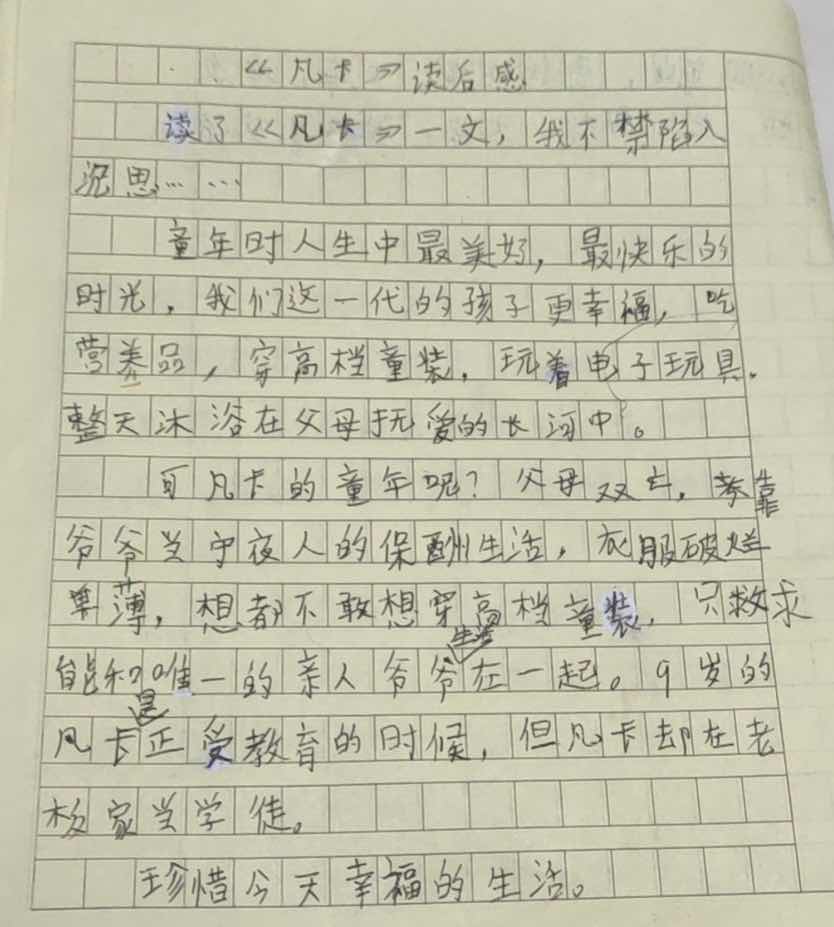 《凡卡》读后感
读了《凡卡》一文，我不禁陷入
沉思……
童年时人生中最美好，最快乐的
时光，我们这一代的孩子更幸福，吃
营养品，穿高档童装，玩着电子玩具，
整天沐浴在父母抚爱的长河中。
可凡卡的童年呢？父母双亡，靠
爷爷当守夜人的保酬生活，衣服破烂
单薄，想都不敢想穿高档童装，只救求
能和唯一的亲人爷爷生活在一起。9岁的
凡卡是正受教育的时候，但凡卡却在老
板家当学徒。
珍惜今天幸福的生活。